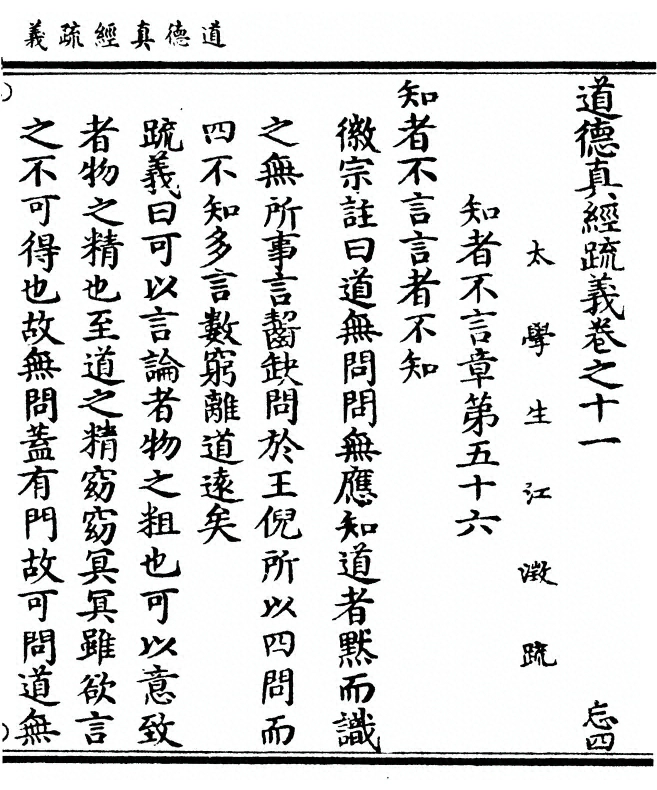 道德真經疏義
道德真經疏義卷之十一
忘四
太學生江澂疏
知者不言章第五十六
知者不言言者不知
徽宗註曰道無問問無應知道者默而識
之無所事言齧缺問於王倪所以四問而
四不知多言數窮離道遠矣
疏義曰可以言論者物之粗也可以意致
者物之精也至道之精窈窈冥冥雖欲言
之不可得也故無問蓋有門故可問道無